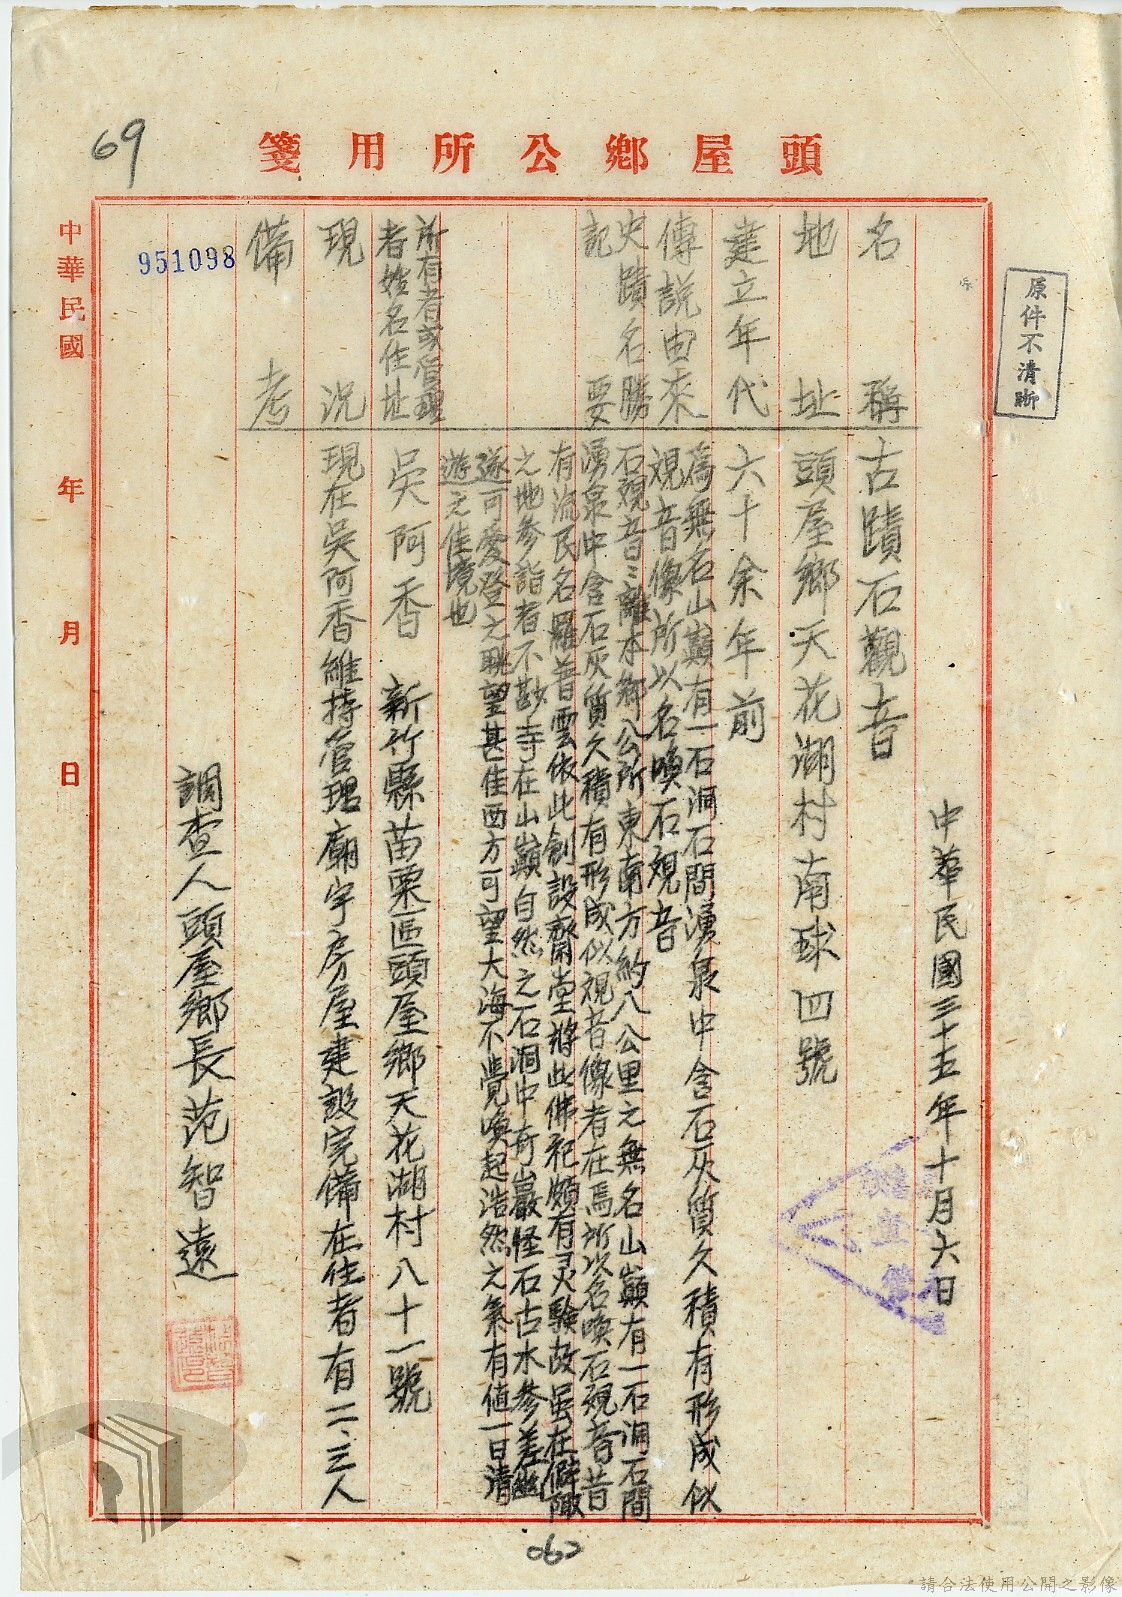 69
頭屋鄉公所用箋
原件不清晰
中華民國三十五年十月六日
名稱 古蹟石觀音
地址 頭屋鄉天花湖村南球四號
建立年代 六十余年前
傳說由來 為無名山巔有一石洞石間湧泉中含石灰質久積有形成似
观音像所以名喚石观音
史蹟名勝記要 石观音ミ離本鄉公所東南方約八公里之無名山巔有一石洞石間
湧泉中含石灰質久積有形成似观音像者在焉所以名喚石观音昔
有流民名羅普雲依此創設齋堂將此佛祀頗有灵驗故虽在僻陬
之地参詣者不尠寺在山巔自然之石洞中奇巖怪石古水参差幽
邃可愛登之眺望甚佳西方可望大海不覺喚起浩然之氣有值一日清
遊之佳境也
所有者或管理者姓名住址 吳阿香 新竹縣苗栗區頭屋鄉天花湖村八十一號
現況 現在吳阿香維持管理廟宇房屋建設完備在住者有二、三人
備考
951098
調查人頭屋鄉長范智遠
中華民國 年 月 日
062
請合法使用公開之影像